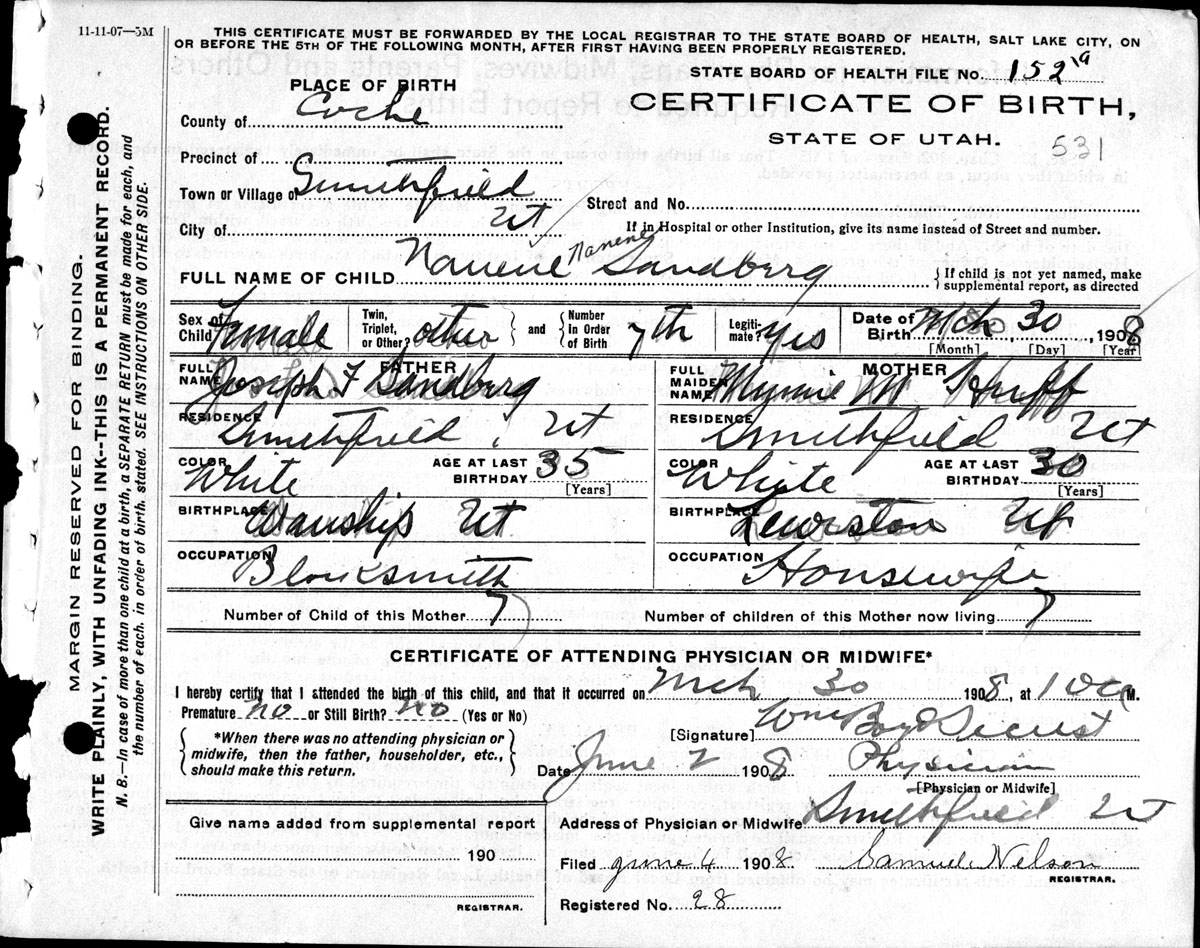 11-11-07—5M
THIS CERTIFICATE MUST BE FORWARDED BY THE LOCAL REGISTRAR TO THE STATE BOARD OF HEALTH, SALT LAKE CITY, ON
OR BEFORE THE 5TH OF THE FOLLOWING MONTH, AFTER FIRST HAVING BEEN PROPERLY REGISTERED.
STATE BOARD OF HEALTH FILE No. 152 a
PLACE OF BIRTH
CERTIFICATE OF BIRTH,
STATE OF UTAH.
531
County of Cache
Precinct of
Town or Village of Smithfield
City of Ut
Street and No.
If in Hospital or other Institution, give its name instead of Street and number.
FULL NAME OF CHILD Nanene Nanene Sandberg
{ If child is not yet named, make
supplemental report, as directed
Sex of Child Female
Twin, Triplet, or Other? other } and { Number In Order of Birth 7th
Legitimate? yes
Date of Birth Mch 30, 1908
[Month] [Day] [Year]
FATHER
FULL NAME Joseph F Sandberg
RESIDENCE Smithfield, Ut
COLOR White
AGE AT LAST BIRTHDAY 35
[Years]
BIRTHPLACE Wanship Ut
OCCUPATION Blacksmith
MOTHER
FULL MAIDEN NAME Mynnie M. Huff
RESIDENCE Smithfield Ut
COLOR White
AGE AT LAST BIRTHDAY 30
[Years]
BIRTHPLACE Lewiston Ut
OCCUPATION Housewife
Number of Child of this Mother 7
Number of children of this Mother now living 7
CERTIFICATE OF ATTENDING PHYSICIAN OR MIDWIFE*
I hereby certify that I attended the birth of this child, and that it occurred on Mch 30 1908, at 10 a M.
Premature No or Still Birth? No (Yes or No)
{ *When there was no attending physician or
midwife, then the father, householder, etc.,
should make this return. }
[Signature] Wm Boyd Secrist
Date June 2 1908
Physician
[Physician or Midwife]
Give name added from supplemental report
190
REGISTRAR.
Address of Physician or Midwife Smithfield Ut
Filed June 4 1908 Samuel Nelson
REGISTRAR.
Registered No. 28
MARGIN RESERVED FOR BINDING.
WRITE PLAINLY, WITH UNFADING INK--THIS IS A PERMANENT RECORD.
N. B.—In case of more than one child at a birth, a SEPARATE RETURN must be made for each, and
the number of each, in order of birth, stated. SEE INSTRUCTIONS ON OTHER SIDE.